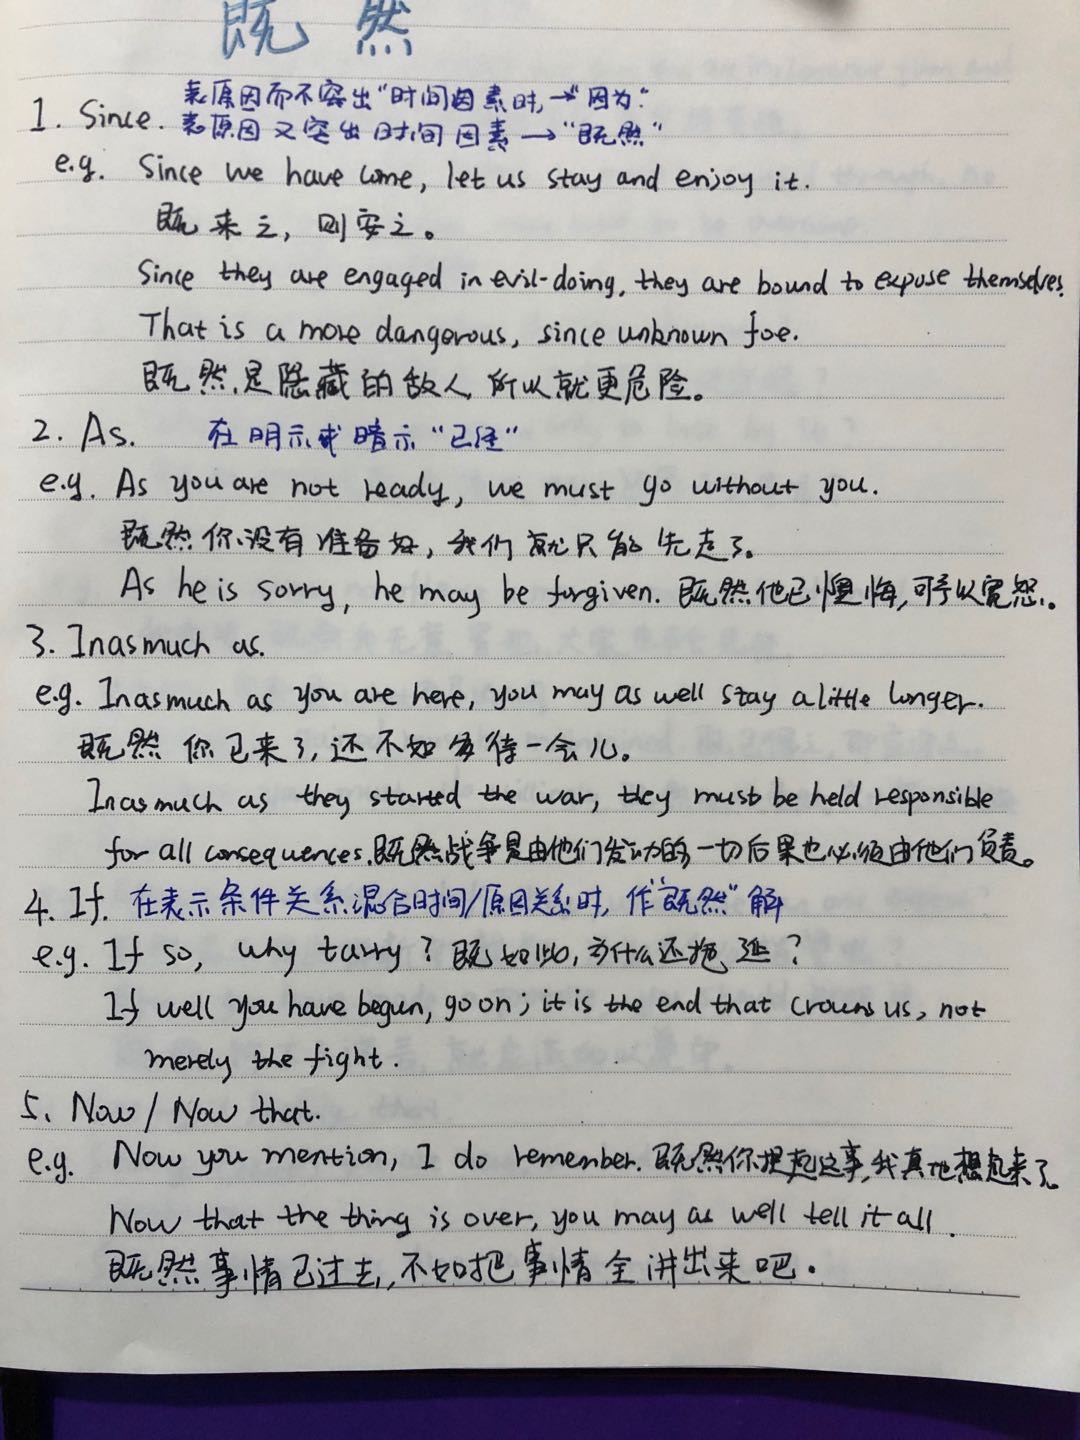 既然
1. Since. 表原因而不突出"时间因素时,→"因为"
表原因又突出时间因素→"既然"
e.g. Since we have come, let us stay and enjoy it.
既来之,则安之。
Since they are engaged in evil-doing, they are bound to expose themselves.
That is a more dangerous, since unknown foe.
既然是隐藏的敌人,所以就更危险。
2. As. 在明示或暗示"已经"
e.g. As you are not ready, we must go without you.
既然你没有准备好,我们就只能先走了。
As he is sorry, he may be forgiven. 既然他已懊悔,可予以宽恕。
3. Inasmuch as.
e.g. Inasmuch as you are here, you may as well stay a little longer.
既然你已来了,还不如多待一会儿。
Inasmuch as they started the war, they must be held responsible
for all consequences. 既然战争是由他们发动的,一切后果也必须由他们负责。
4. If. 在表示条件关系混合时间/原因关系时,作"既然"解
e.g. If so, why tarry? 既如此,为什么还拖延?
If well you have begun, go on; it is the end that crowns us, not
merely the fight.
5. Now / Now that.
e.g. Now you mention, I do remember. 既然你提起这事,我真地想起来了。
Now that the thing is over, you may as well tell it all.
既然事情已过去,不如把事情全讲出来吧.